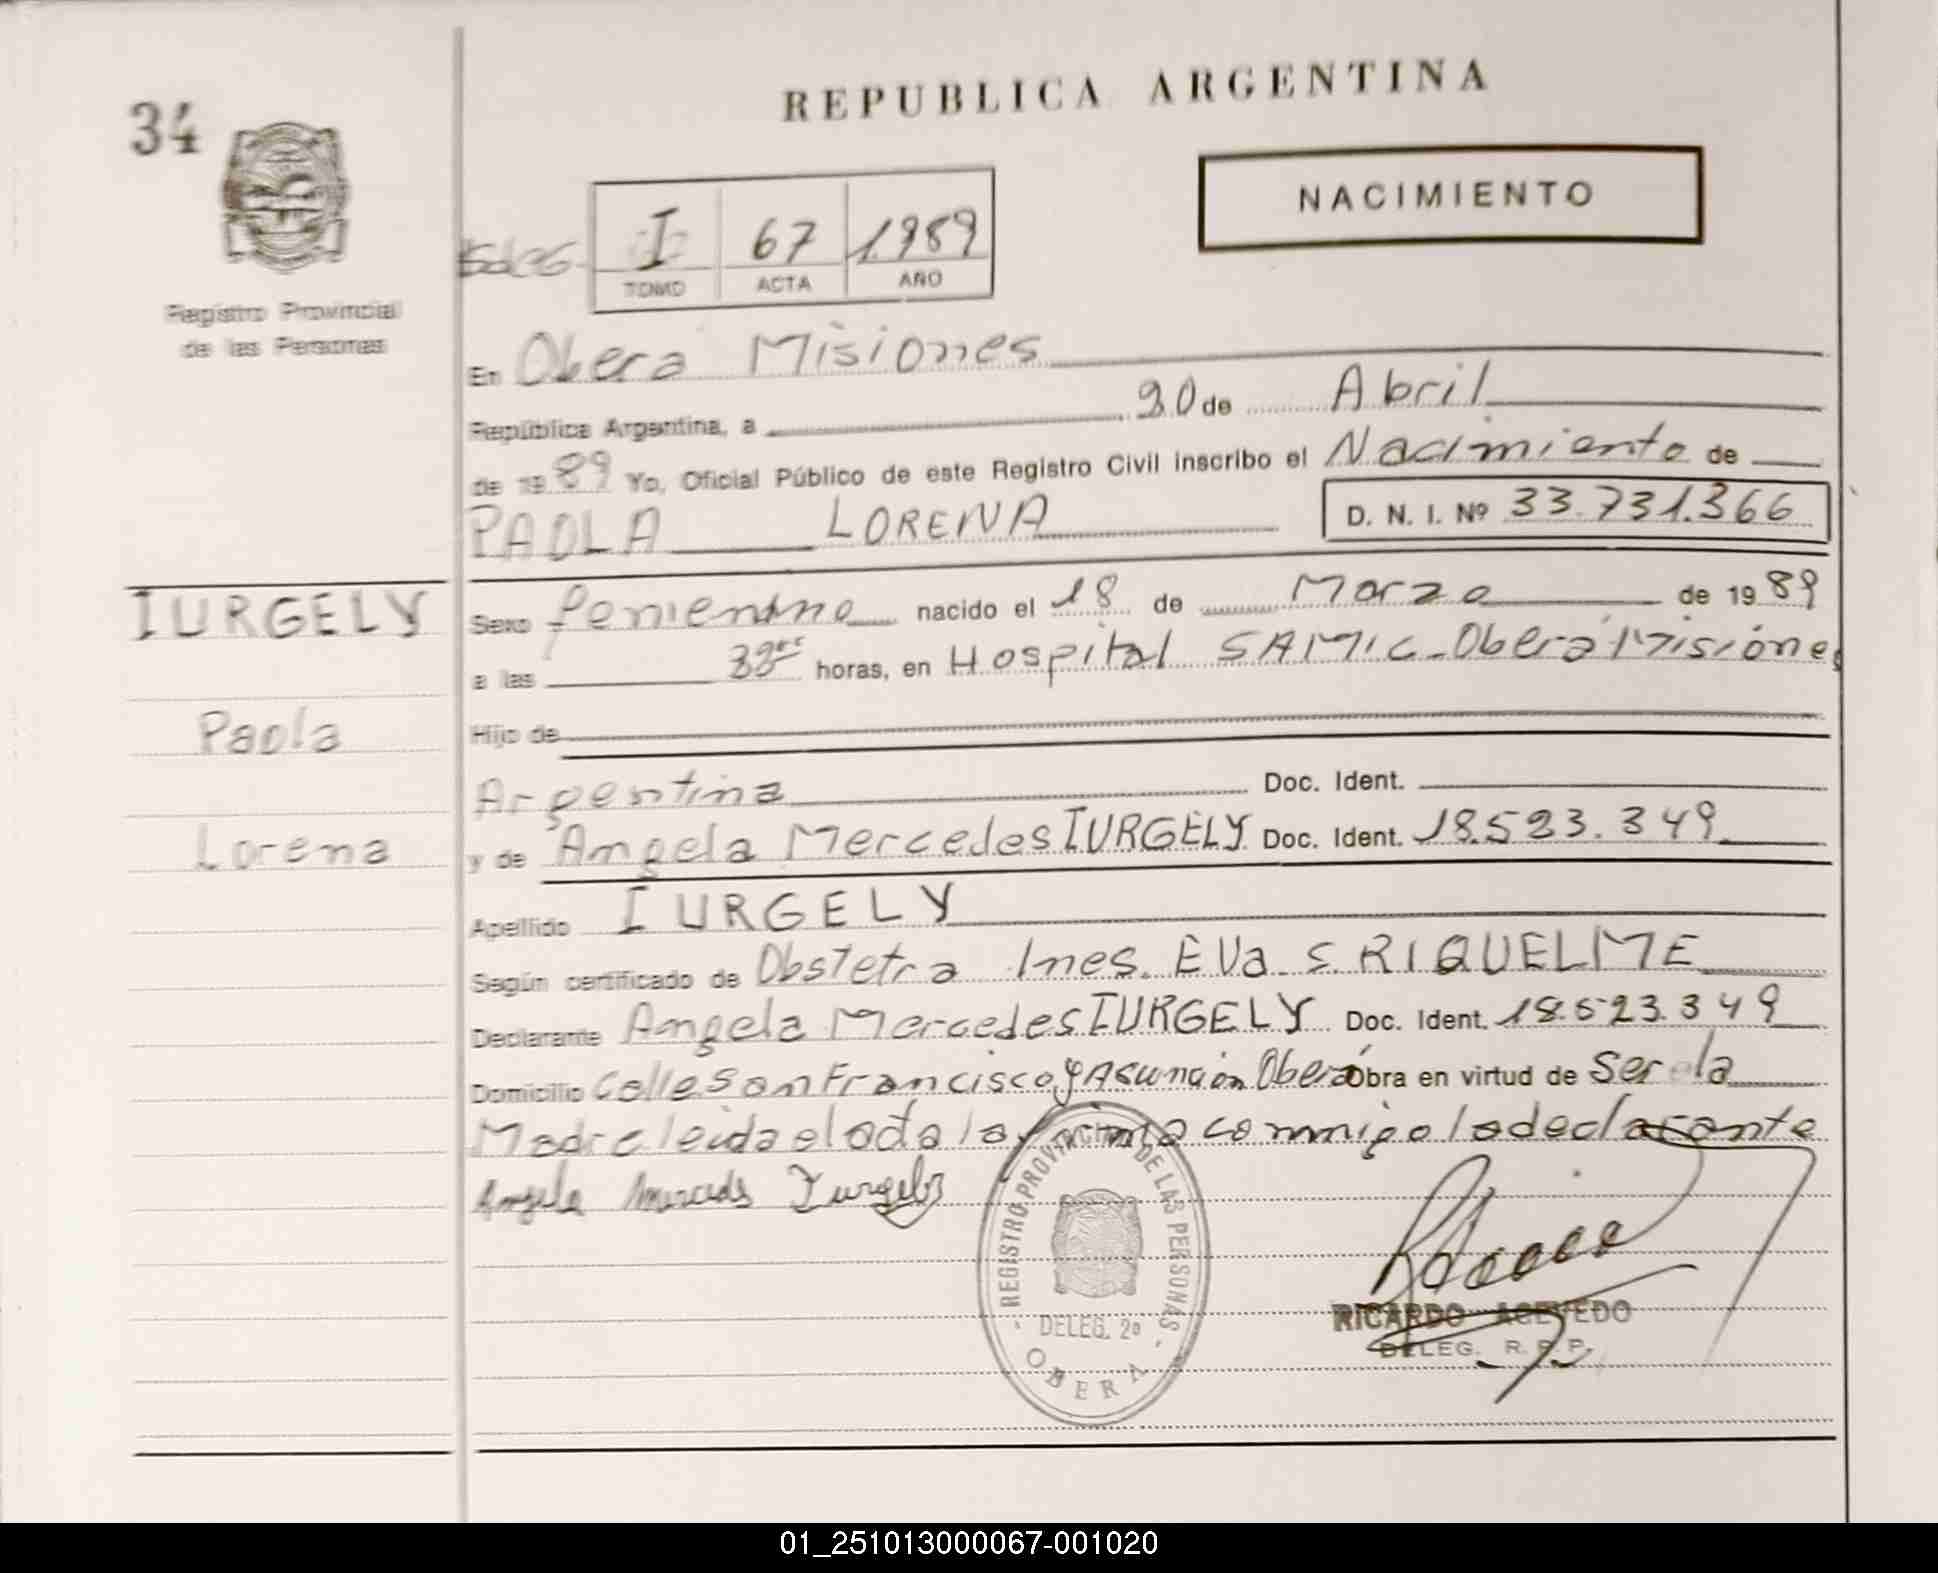 REPUBLICA ARGENTINA
34
NACIMIENTO
I 67 1989
TOMO ACTA AÑO
Registro Provincial
de las Personas
En Obera Misiones
República Argentina, a 20 de Abril
de 1989 Yo, Oficial Público de este Registro Civil inscribo el Nacimiento de
PAOLA LORENA D. N. I. Nº 33.731.366
IURGELY
Sexo femenino nacido el 18 de Marzo de 1989
a las horas, en Hospital SAMIC - Oberá Misiones
Paola
Hijo de
Argentina Doc. Ident.
Lorena
y de Angela Mercedes IURGELY Doc. Ident. 18.523.349
Apellido IURGELY
Según certificado de Obstetra Ines. EVa. S. RIQUELME
Declarante Angela Mercedes IURGELY Doc. Ident. 18.523.349
Domicilio Calle San Francisco y Asunción Oberá Obra en virtud de Ser la
Madre leida el acta la firma conmigo la declarante
Angela Mercedes Iurgely
REGISTRO PROVINCIAL DE LAS PERSONAS
DELEG. 2º
OBERA
RICARDO ACEVEDO
DELEG. R. P. P.
01_251013000067-001020